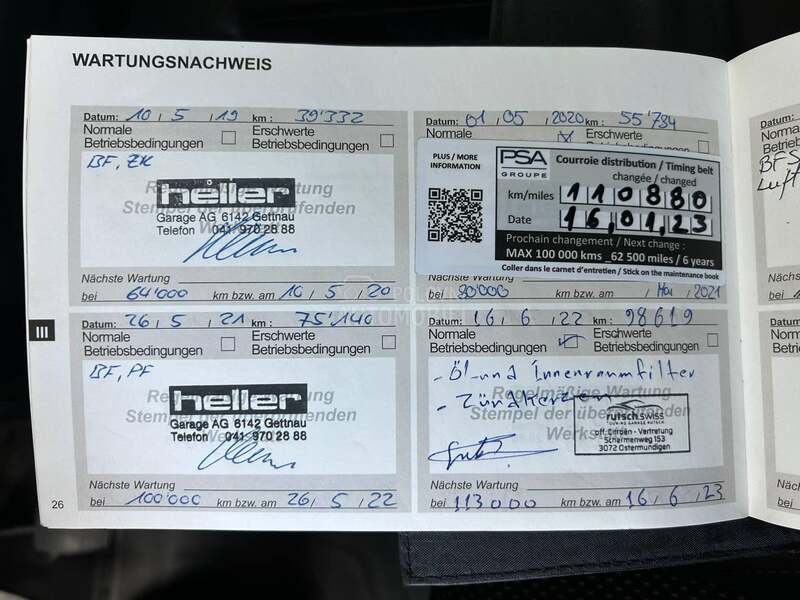 WARTUNGSNACHWEIS
Datum: 10 / 5 / 19 km: 39'332
Normale Betriebsbedingungen
Erschwerte Betriebsbedingungen
BF, ZK
Regelmäßige Wartung
Stempel der überprüfenden
heller
Garage AG 6142 Gettnau
Telefon 041 970 28 88
Nächste Wartung
bei 64'000 km bzw. am 10 / 5 / 20
Datum: 01 / 05 / 2020 km: 55'784
Normale
Erschwerte
Betriebsbedingungen
PLUS / MORE
INFORMATION
PSA
GROUPE
Courroie distribution / Timing belt
changée / changed
km/miles 110880
Date 16,01,23
Prochain changement / Next change :
MAX 100 000 kms _62 500 miles / 6 years
Coller dans le carnet d'entretien / Stick on the maintenance book
bei 80'000 / Mai / 2021
III
Datum: 26 / 5 / 21 km: 75'140
Normale Betriebsbedingungen
Erschwerte Betriebsbedingungen
BF, PF
heller
Garage AG 6142 Gettnau
Telefon 041 970 28 88
Nächste Wartung
bei 100'000 km bzw. am 26 / 5 / 22
Datum: 16 / 6 / 22 km: 98619
Normale Betriebsbedingungen
Erschwerte Betriebsbedingungen
- Öl- und Innenraumfilter
- Zündkerzen
Regelmäßige Wartung
Stempel der überprüfenden
rutsch.swiss
TOURING GARAGE RUTSCH
off. Citroën - Vertretung
Schermenweg 153
3072 Ostermundigen
Nächste Wartung
bei 113000 km bzw. am 16 / 6 / 23
26
Datum:
Normale
Betriebsb
BFS
Luft
Nächste
bei
Datum:
Normale
Betrieb